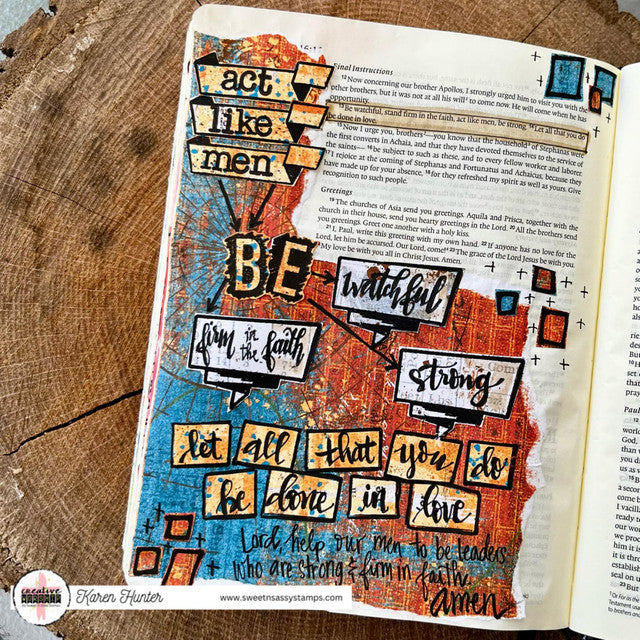 act
like
men
BE
watchful
firm in the faith
strong
let all that you do
be done in love
Lord, help our men to be leaders
who are strong & firm in faith
amen
Final Instructions
12Now concerning our brother Apollos, I strongly urged him to visit you with the
other brothers, but it was not at all his will to come now. He will come when he has
opportunity.
13Be watchful, stand firm in the faith, act like men, be strong. 14Let all that you do
be done in love.
15Now I urge you, brothers—you know that the household of Stephanas were
the first converts in Achaia, and that they have devoted themselves to the service of
the saints— 16be subject to such as these, and to every fellow worker and laborer.
I rejoice at the coming of Stephanas and Fortunatus and Achaicus, because they
have made up for your absence, 18for they refreshed my spirit as well as yours. Give
recognition to such people.
Greetings
19The churches of Asia send you greetings. Aquila and Prisca, together with the
church in their house, send you hearty greetings in the Lord. 20All the brothers send
you greetings. Greet one another with a holy kiss.
21I, Paul, write this greeting with my own hand. 22If anyone has no love for the
Lord, let him be accursed. Our Lord, come! 23The grace of the Lord Jesus be with you.
My love be with you all in Christ Jesus. Amen.
creative
Karen Hunter
www.sweetnsassystamps.com